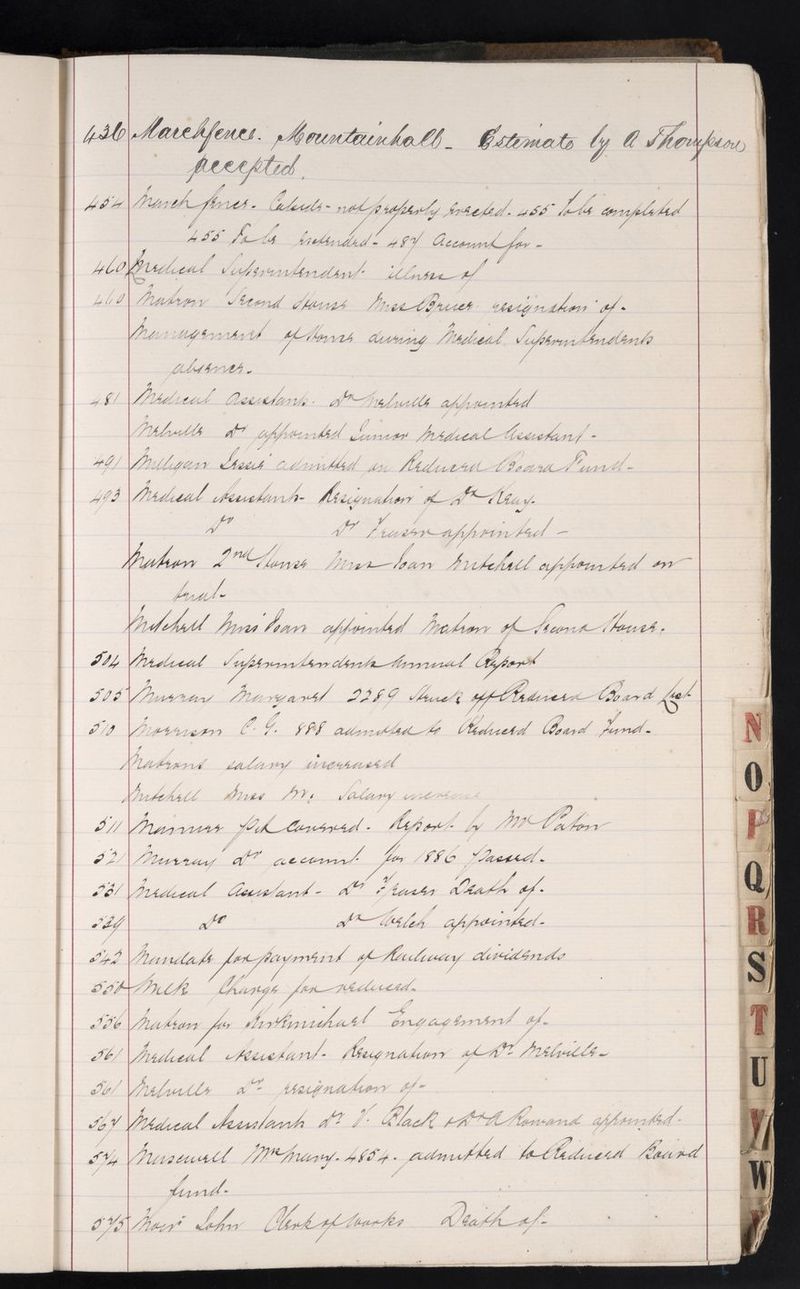 436 Marchfence. Mountainhall - Estimate by A Thompson
accepted.
454 March fence - not properly erected. 455 To be completed
455 To be extended - 487 Account for -
460 Medical Superintendent illness of
460 Matron Second House Miss Bruce resignation of -
Management of Home during Medical Superintendents
absence -
481 Medical Assistant. Dr Melville appointed
Melville Dr appointed Junior Medical Assistant -
491 Milligan Jessie admitted on Reduced Board Fund -
493 Medical Assistant - Resignation of Dr Keay -
Do Dr Fraser appointed -
Matron 2nd House Miss Mitchell appointed on
trial -
Mitchell Miss appointed Matron of Second House.
504 Medical Superintendents Annual Report
505 Murray Margaret 2289 Struck off Reduced Board List
510 Morrison C. G. 888 admitted to Reduced Board Fund -
Matrons salary increased
Mitchell Miss Salary increase
511 Manure pit covered - Report by Mr Paton
521 Murray Dr account for 1886 passed -
531 Medical Assistant - Dr Fraser Death of -
539 Do Dr Welch appointed -
542 Mandate for payment of Railway dividends
550 Milk Charge for reduced -
556 Matron for Kirkmichael Engagement of -
561 Medical Assistant - Resignation of Dr Melville -
561 Melville Dr resignation of -
567 Medical Assistants Dr Black & Dr A Rowand appointed -
574 Mrs Mary - 4854 - admitted to Reduced Board
fund -
575 Moir John Clerk of Works Death of -
N
O
P
Q
R
S
T
U
V
W